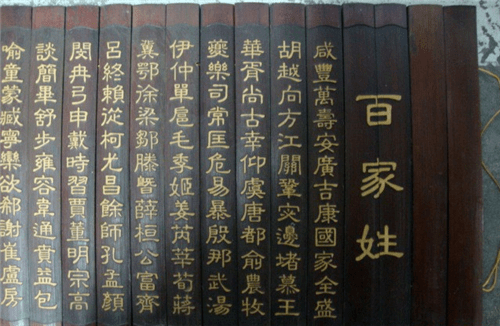 百家姓
咸豐萬壽安廣吉康國家全盛
胡越向方江關鞏邊堵慕王
華胥尚古幸仰虞唐都俞農牧
夔樂司常匡危易暴殷那武湯
伊仲單扈毛季姬姜芮莘荀蔣
冀鄂徐梁鄒滕暨薛桓公富齊
呂終賴從柯尤昌餘師孔孟顏
閔冉弓申戴時習賈董明宗高
談簡畢舒步雍容韋通貢益包
喻童蒙臧寧欒欲郗謝崔盧房